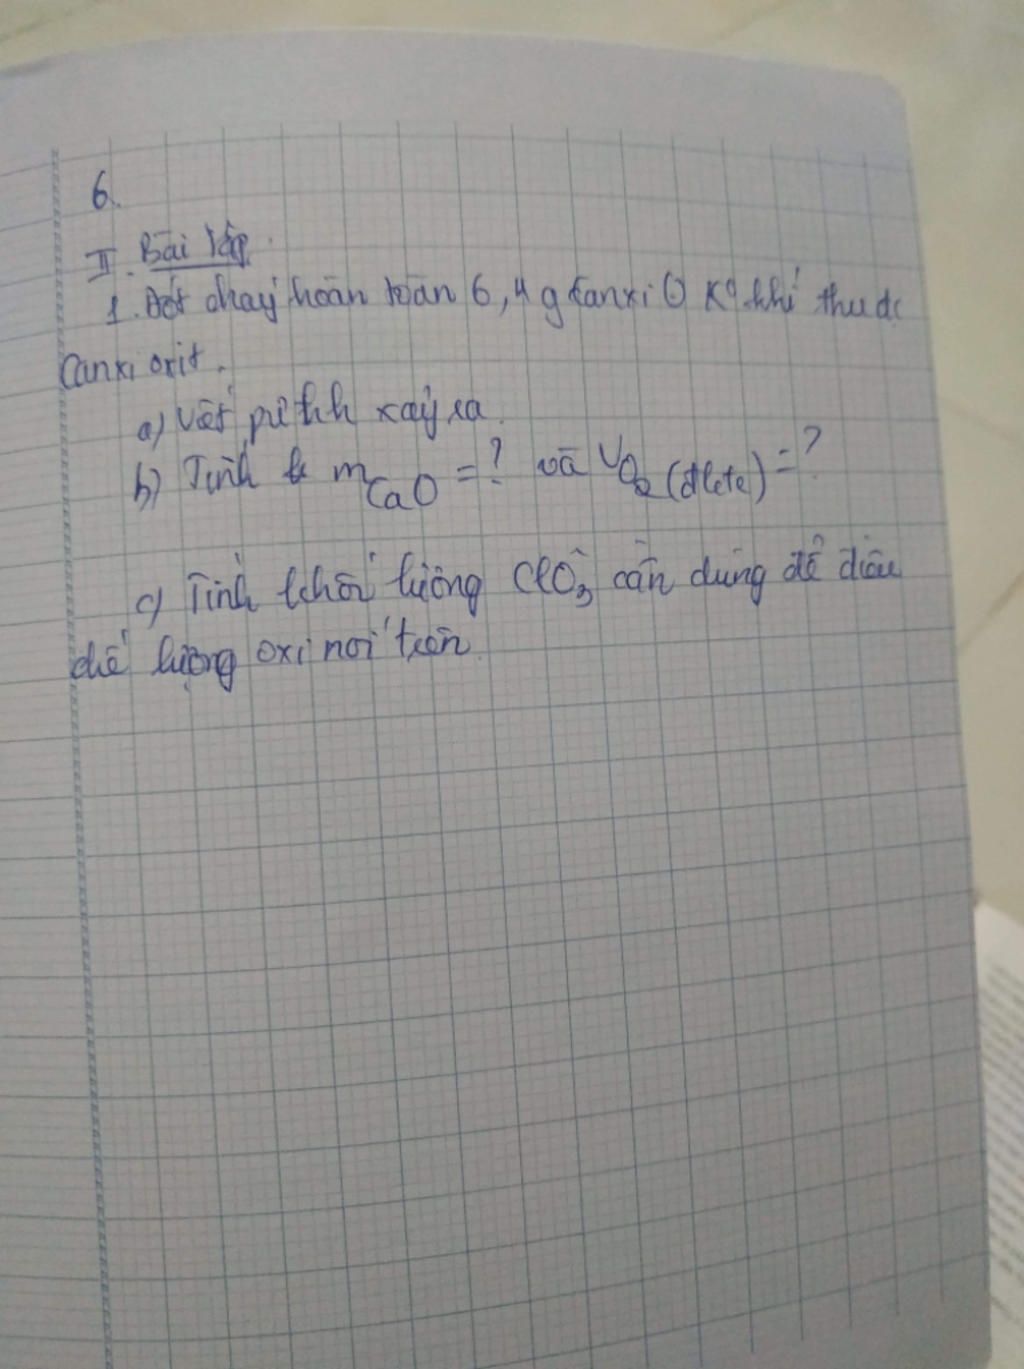 6.
II. Bài tập.
1. Đốt cháy hoàn toàn 6,4 g canxi ① K⁰ khí thu đc
Canxi oxit.
a) Viết pứ hh xảy ra.
b) Tính m CaO = ? và V O₂ (đktc) = ?
c) Tính khối lượng ClO₃ cần dùng để điều
chế lượng oxi nói trên.